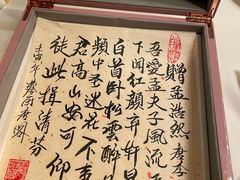 贈孟浩然
吾愛孟夫子風流
下聞紅顏棄軒冕
白首卧松雲醉
頻中聖迷花不事
君高山安可仰
徒此揖清芬
壬寅年